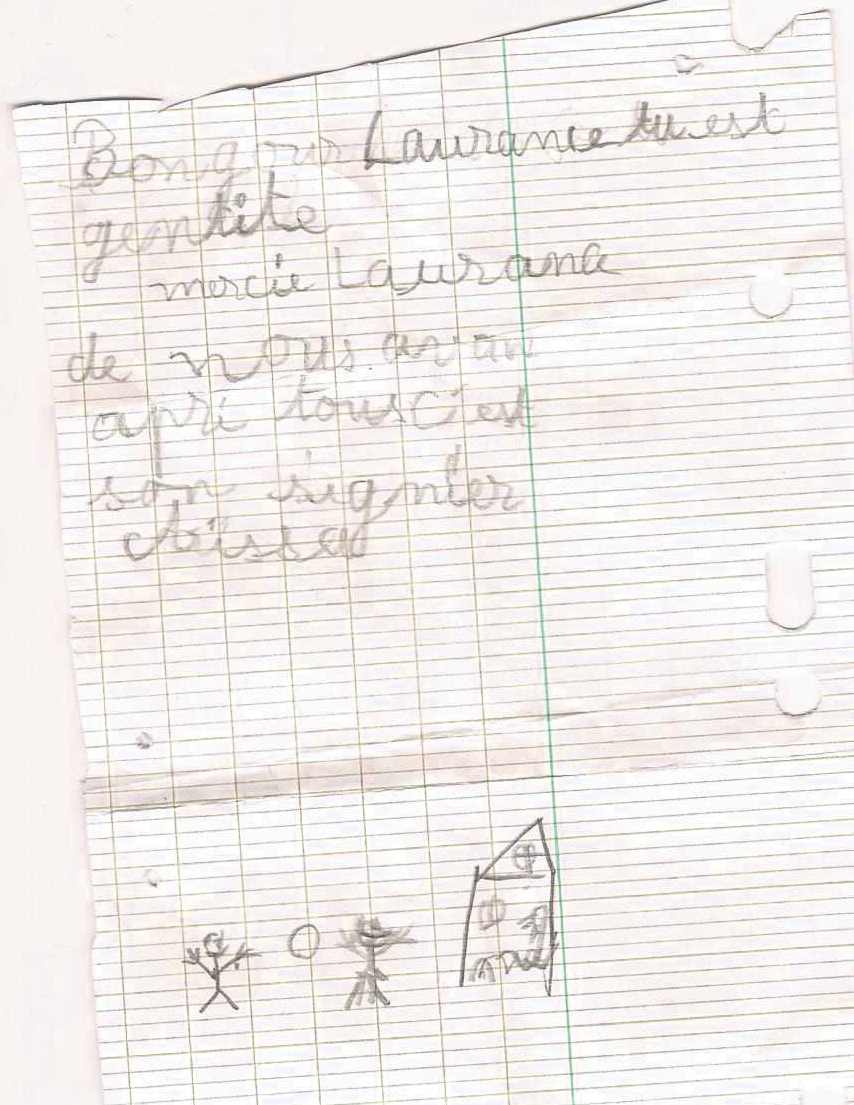 Bongour Laurance tu est
gentite
mercie Laurance
de nous avan
apri tous c'est
son signier
Aissa